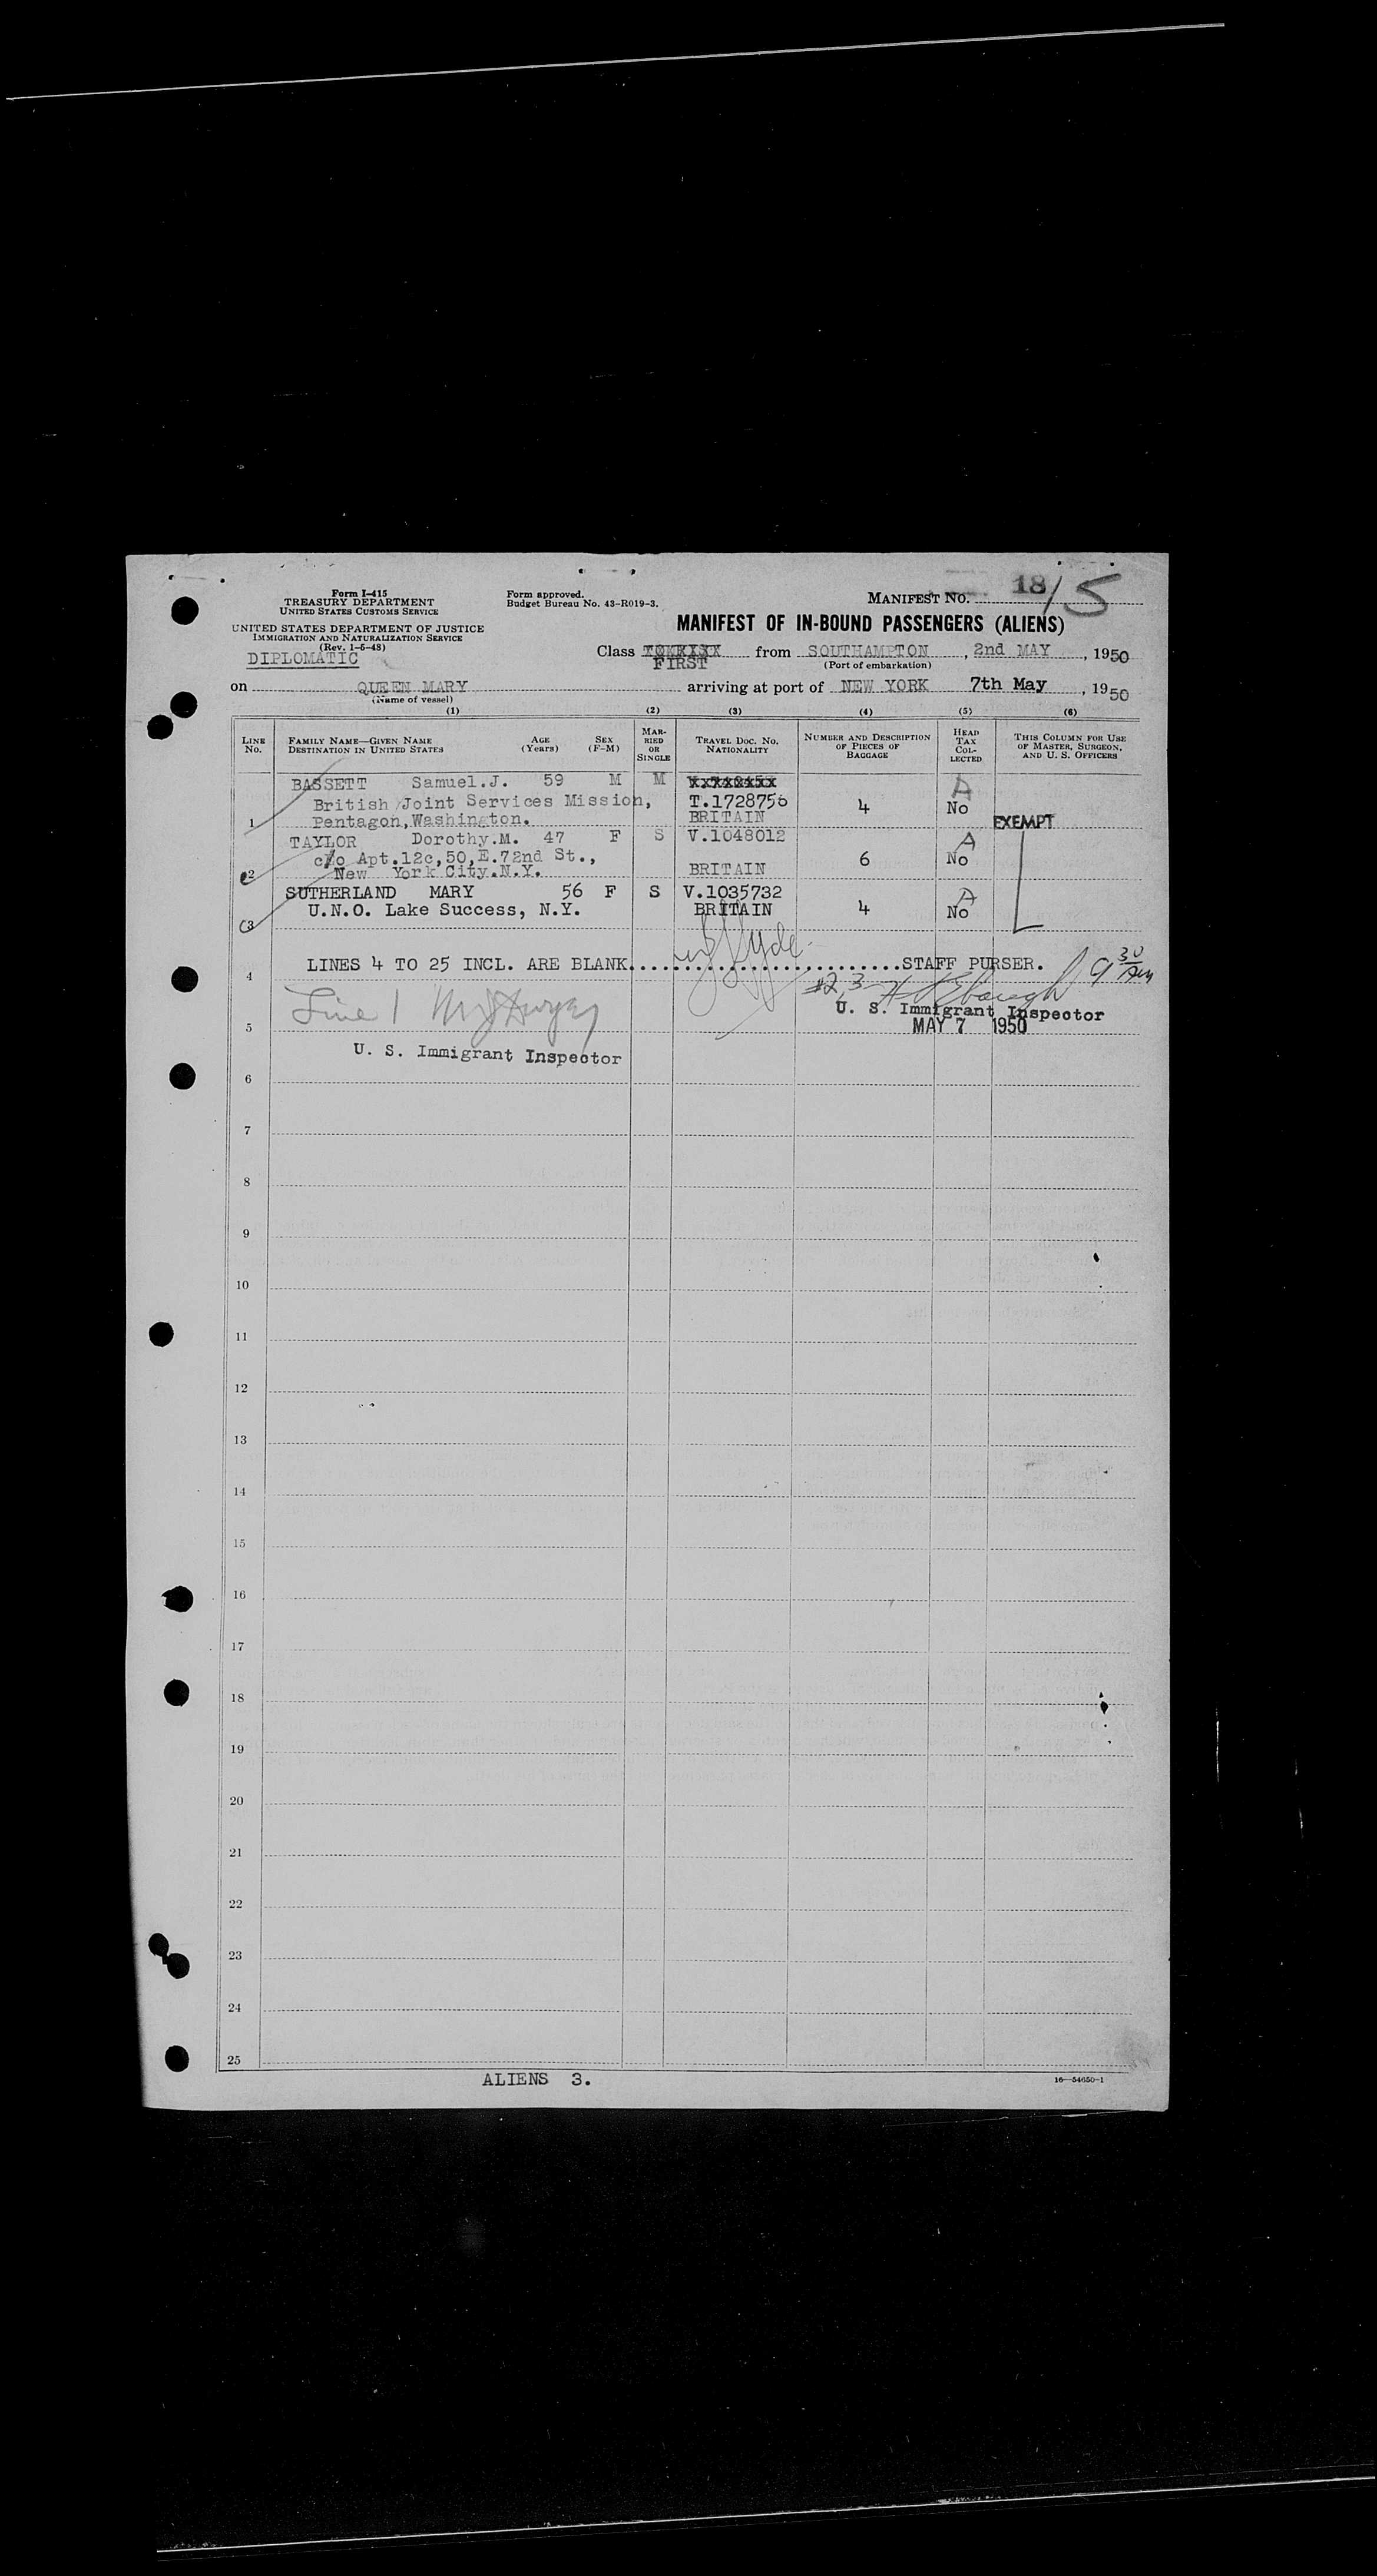 Form I-415
TREASURY DEPARTMENT
UNITED STATES CUSTOMS SERVICE
UNITED STATES DEPARTMENT OF JUSTICE
IMMIGRATION AND NATURALIZATION SERVICE
(Rev. 1-5-48)
DIPLOMATIC
Form approved.
Budget Bureau No. 43-R019-3.
MANIFEST NO. 18/5
MANIFEST OF IN-BOUND PASSENGERS (ALIENS)
Class FIRST from SOUTHAMPTON, 2nd MAY, 1950
(Port of embarkation)
on QUEEN MARY arriving at port of NEW YORK 7th May, 1950
(Name of vessel)
(1) (2) (3) (4) (5) (6)
LINE No. FAMILY NAME—GIVEN NAME DESTINATION IN UNITED STATES AGE (Years) SEX (F-M) MARRIED OR SINGLE TRAVEL DOC. NO. NATIONALITY NUMBER AND DESCRIPTION OF PIECES OF BAGGAGE HEAD TAX COLLECTED THIS COLUMN FOR USE OF MASTER, SURGEON, AND U. S. OFFICERS
BASSETT Samuel.J. 59 M M
British Joint Services Mission, T.1728756 4 A No
1 Pentagon,Washington. BRITAIN EXEMPT
TAYLOR Dorothy.M. 47 F S V.1048012 A
c/o Apt.12c,50,E.72nd St., 6 No
2 New York City.N.Y. BRITAIN
SUTHERLAND MARY 56 F S V.1035732 A
U.N.O. Lake Success, N.Y. BRITAIN 4 No
3
4 LINES 4 TO 25 INCL. ARE BLANK..........................STAFF PURSER. 9 30 AM
#2,3
Line 1
U. S. Immigrant Inspector
5 MAY 7 1950
U. S. Immigrant Inspector
6
7
8
9
10
11
12
13
14
15
16
17
18
19
20
21
22
23
24
25
ALIENS 3.
16—54650-1